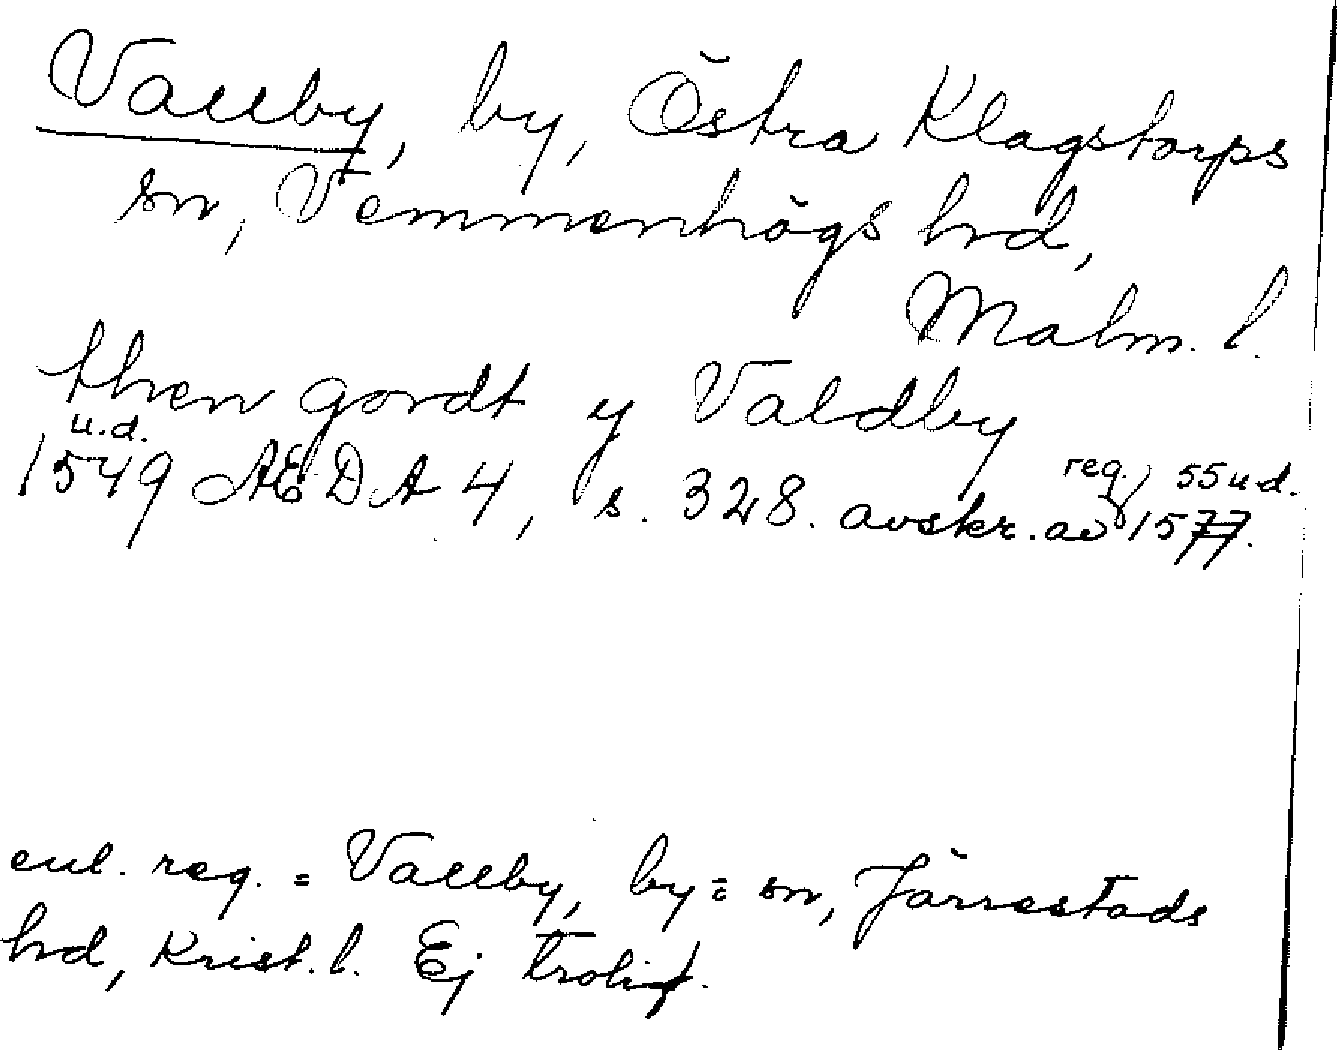 Vallby, by, Östra Klagstorps
sn, Vemmenhögs hrd,
Malm. l.
then gordt y Valdby
u.d.
1549 AEDA 4, s. 328. avskr. av reg. 55 u.d. 1577.
enl. reg. = Vallby, by = sn, Järrestads
hrd, Krist. l. Ej troligt.